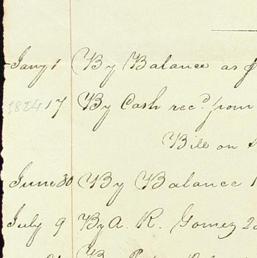 Jany 1 By Balance as
1824 17 By Cash recd. from
Bill on
June 30 By Balance
July 9 By A. R. Gomez
By